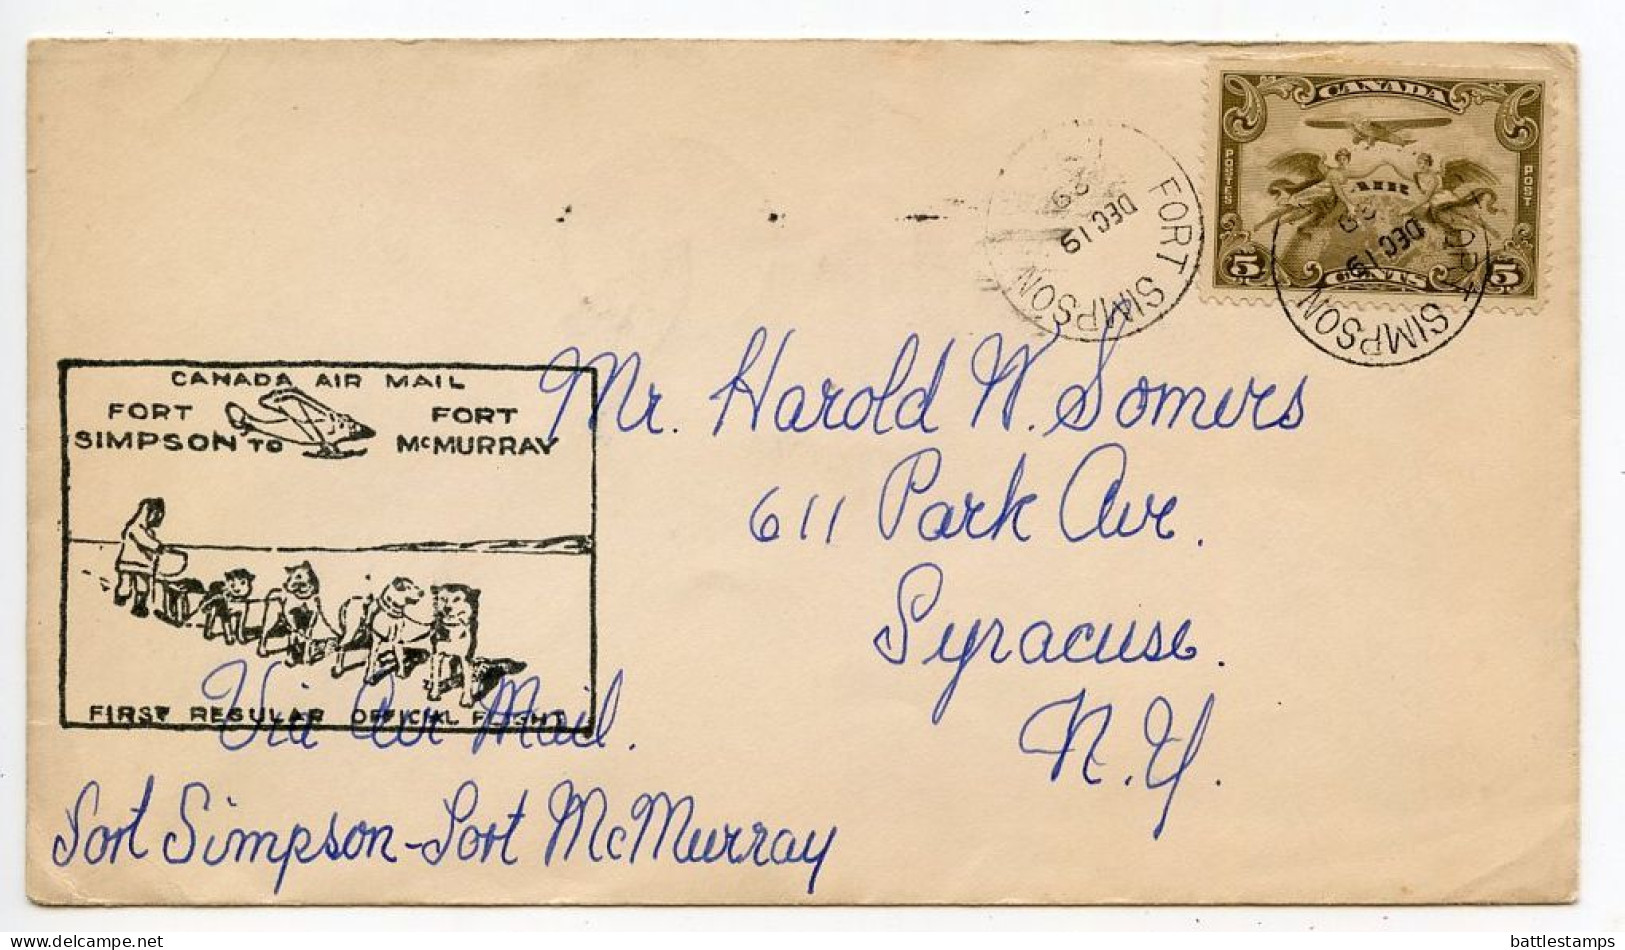 CANADA
POSTES
POST
AIR
5 CENTS 5
FORT SIMPSON
DEC 19
29
FORT SIMPSON
DEC 19
29
CANADA AIR MAIL
FORT SIMPSON TO FORT McMURRAY
FIRST REGULAR OFFICIAL FLIGHT
Mr. Harold W. Somers
611 Park Ave.
Syracuse.
N.Y.
Via Air Mail.
Fort Simpson - Fort McMurray
battlestamps